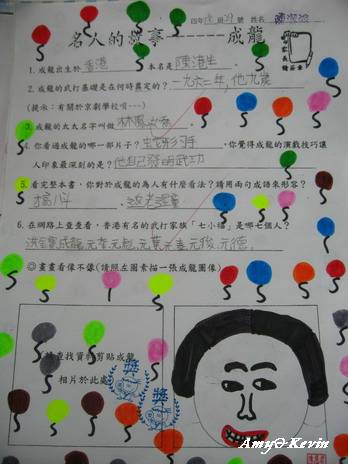 四年 班 號 姓名
名人的故事------成龍
1. 成龍出生於 香港 本名是 陳港生
2. 成龍的武打基礎是在何時奠定的? 一九六二年,他九歲
(提示:有關於京劇學校唷~~)
3. 成龍的太太名字叫做 林鳳嬌
4. 你看過成龍的哪一部片子? 你覺得成龍的演戲技巧讓
人印象最深刻的是? 他自己發明武功
5. 看完整本書,你對於成龍的為人有什麼看法?請用兩句成語來形容?
6. 在網路上查查看,香港有名的武打家族「七小福」是哪七個人?
洪金寶,成龍,元奎,元彪,元華,元武,元德,
◎畫畫看像不像(請照左圖素描一張成龍圖像)
查找資料剪貼成龍
相片於此處
獎
獎
Amy&Kevin